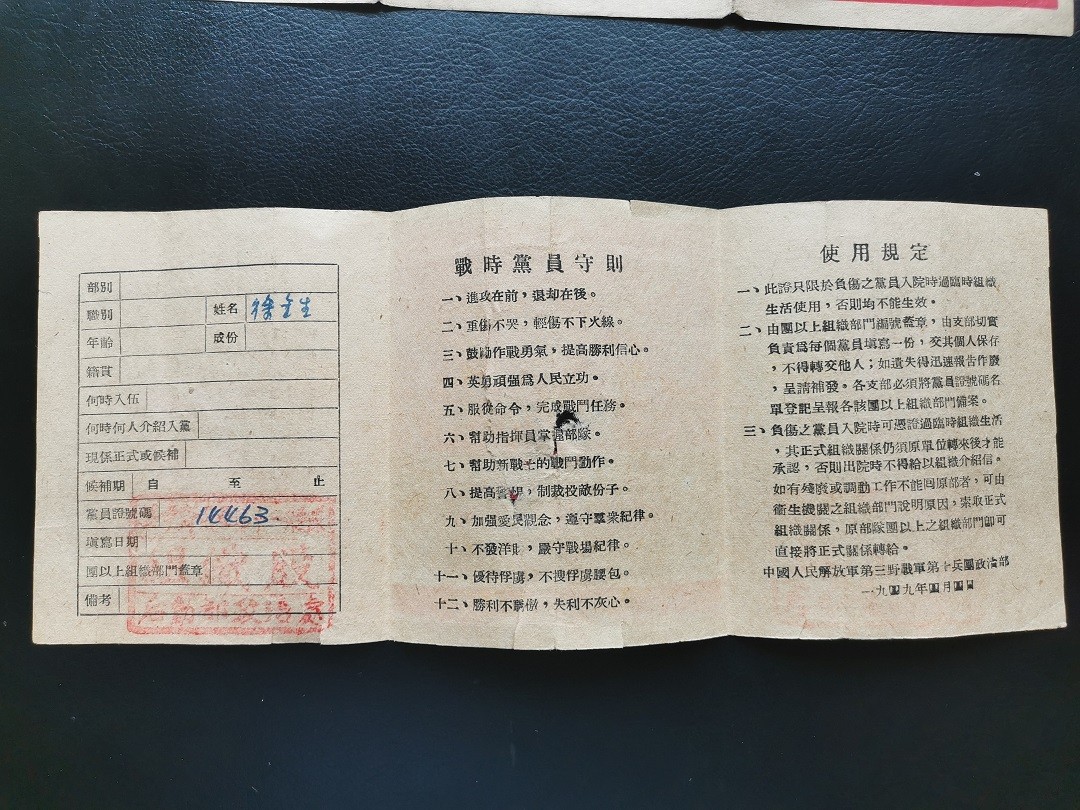 部別
職別
姓名 徐金生
年齡
成份
籍貫
何時入伍
何時何人介紹入黨
現係正式或候補
候補期 自 至 止
黨員證號碼 14463
填寫日期
團以上組織部門蓋章
備考
戰時黨員守則
一、進攻在前，退却在後。
二、重傷不哭，輕傷不下火線。
三、鼓勵作戰勇氣，提高勝利信心。
四、英勇頑強爲人民立功。
五、服從命令，完成戰鬥任務。
六、幫助指揮員掌握部隊。
七、幫助新戰士的戰鬥動作。
八、提高警惕，制裁投敵份子。
九、加強愛民觀念，遵守羣衆紀律。
十、不發洋財，嚴守戰場紀律。
十一、優待俘虜，不搜俘虜腰包。
十二、勝利不驕傲，失利不灰心。
使用規定
一、此證只限於負傷之黨員入院時過臨時組織
生活使用，否則均不能生效。
二、由團以上組織部門編號蓋章，由支部切實
負責爲每個黨員填寫一份，交其個人保存
，不得轉交他人；如遺失得迅速報告作廢
，呈請補發。各支部必須將黨員證號碼名
單登記呈報各該團以上組織部門備案。
三、負傷之黨員入院時可憑證過臨時組織生活
，其正式組織關係仍須原單位轉來後才能
承認，否則出院時不得給以組織介紹信。
如有殘廢或調動工作不能回原部者，可由
衛生機關之組織部門說明原因，索取正式
組織關係，原部隊團以上之組織部門卽可
直接將正式關係轉給。
中國人民解放軍第三野戰軍第十兵團政治部
一九四九年四月四日